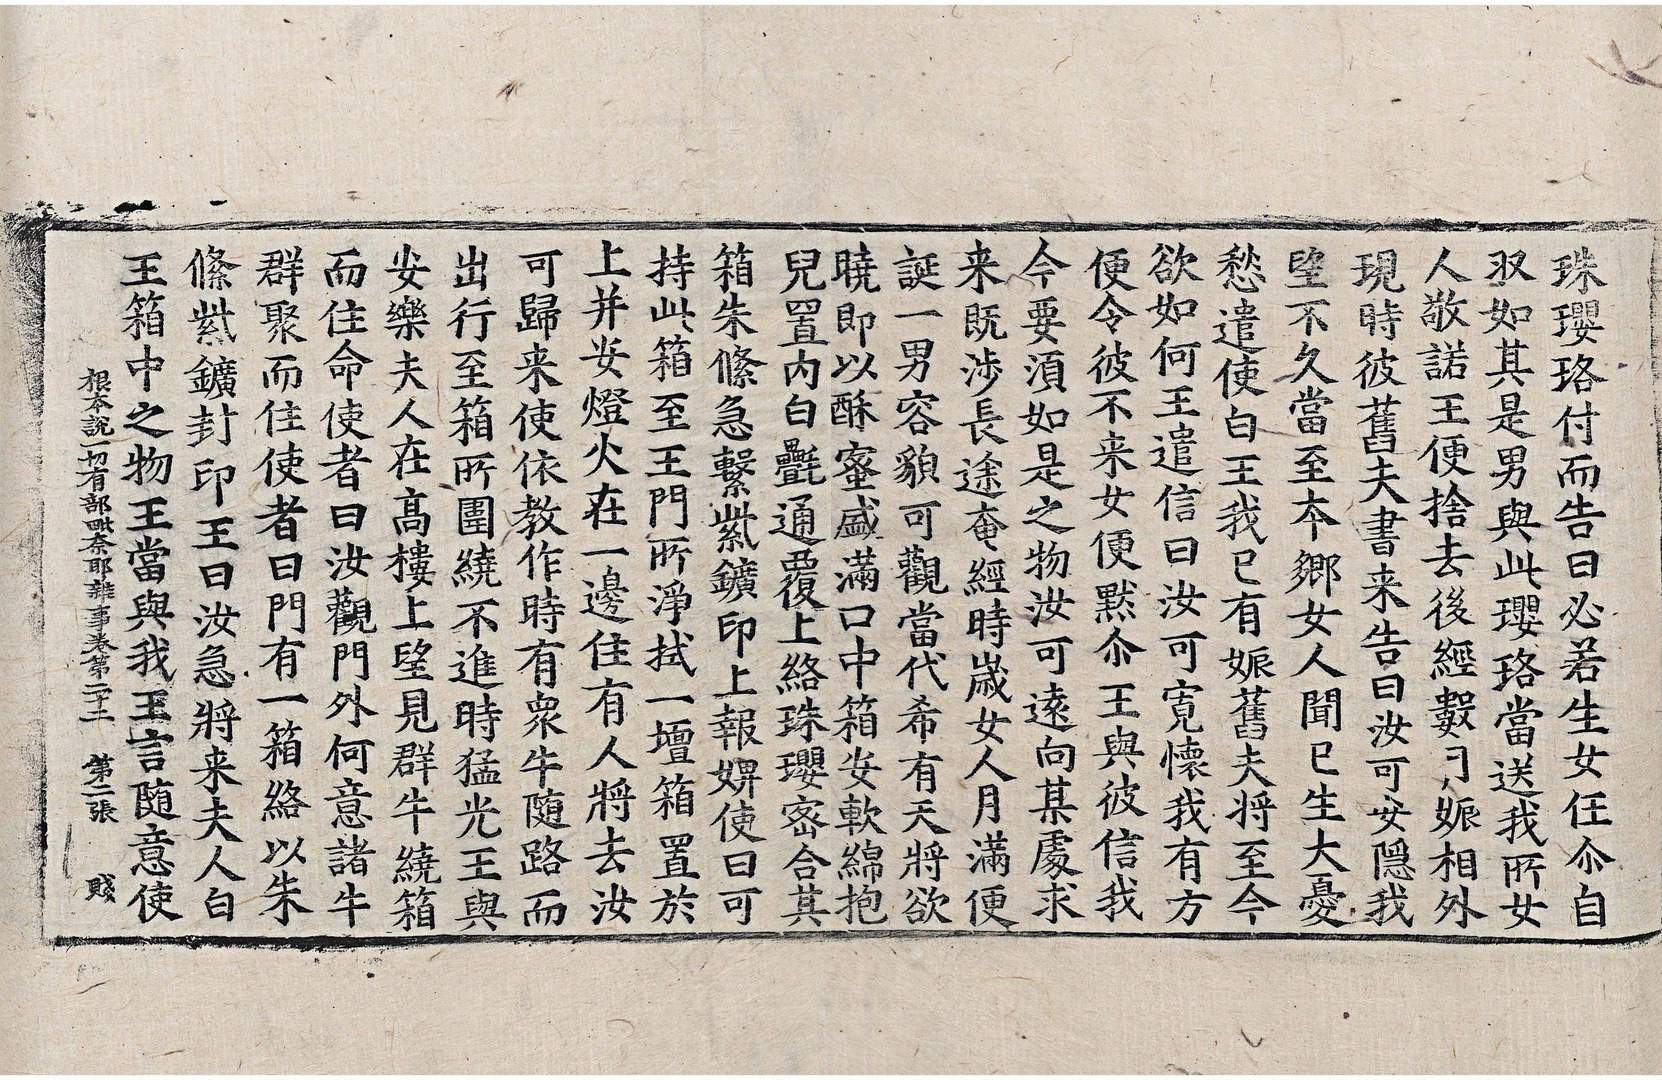 珠瓔珞付而告曰必若生女任尒自
収如其是男與此瓔珞當送我所女
人敬諾王便捨去後經數月娠相外
現時彼舊夫書来告曰汝可安隱我
望不久當至本鄉女人聞已生大憂
愁遣使白王我已有娠舊夫將至今
欲如何王遣信曰汝可寬懷我有方
便令彼不来女便黙尒王與彼信我
今要湏如是之物汝可遠向某處求
来既涉長途奄經時歳女人月滿便
誕一男容貌可觀當代希有天將欲
曉即以酥蜜盛滿口中箱安軟綿抱
兒置內白㲲通覆上絡珠瓔密合其
箱朱絛急繫紫鑛印上報婢使曰可
持此箱至王門所淨拭一壇箱置於
上并安燈火在一邊住有人將去汝
可歸来使依教作時有衆牛随路而
出行至箱所圍繞不進時猛光王與
安樂夫人在高樓上望見群牛繞箱
而住命使者曰汝觀門外何意諸牛
群聚而住使者曰門有一箱絡以朱
絛紫鑛封印王曰汝急將来夫人白
王箱中之物王當與我王言随意使
根本說一切有部毗奈耶雜事卷第二十二 第二張 賤